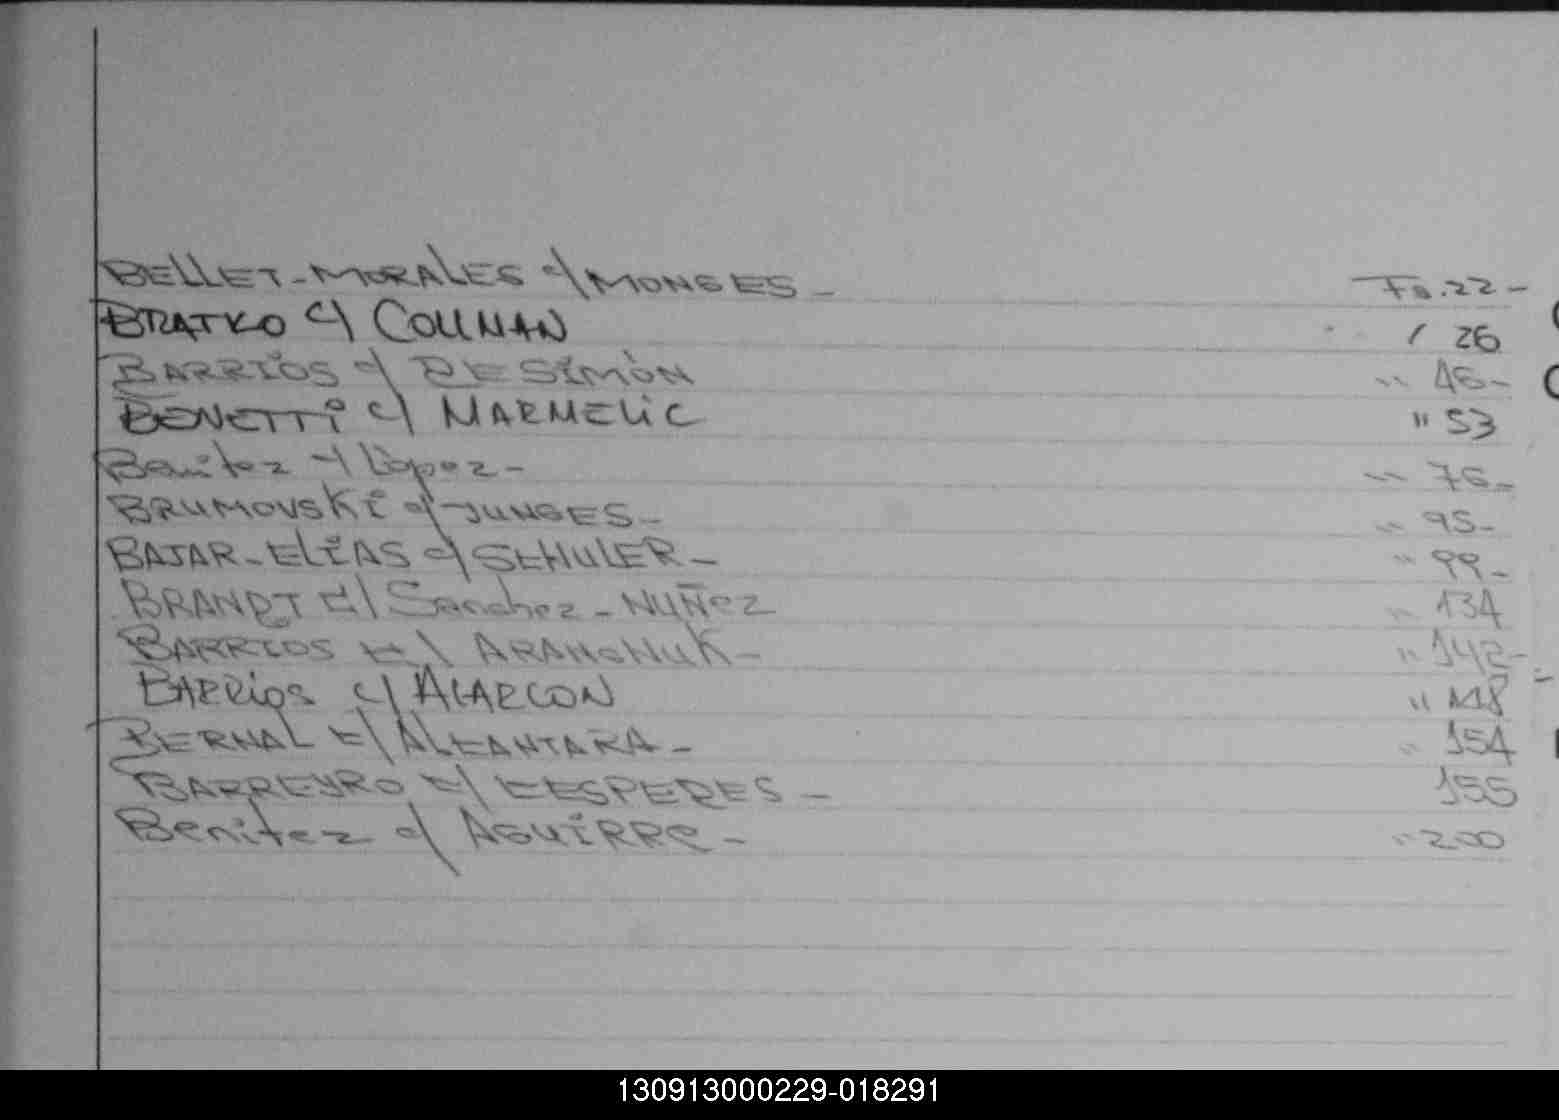 BELLET-MORALES c/ MONGES - Fo. 22 -
BRATKO c/ COLMAN / 26
BARRIOS c/ DE SIMÒN " 46 -
BENETTI c/ MARMELIC " 53
Benitez c/ Lòpez - " 76 -
BRUMOVSKI c/ JUNGES - " 95 -
BAJAR-ELIAS c/ SCHULER - " 99 -
BRANDT C/ Sanchez - NUÑez " 134
BARRIOS C/ - " 142 -
BARRIOS c/ ALARCON " 148
BERNAL C/ ALCANTARA - " 154
BARREYRO C/ CESPEDES - 155
Benitez c/ AGUIRRe - " 200
130913000229-018291